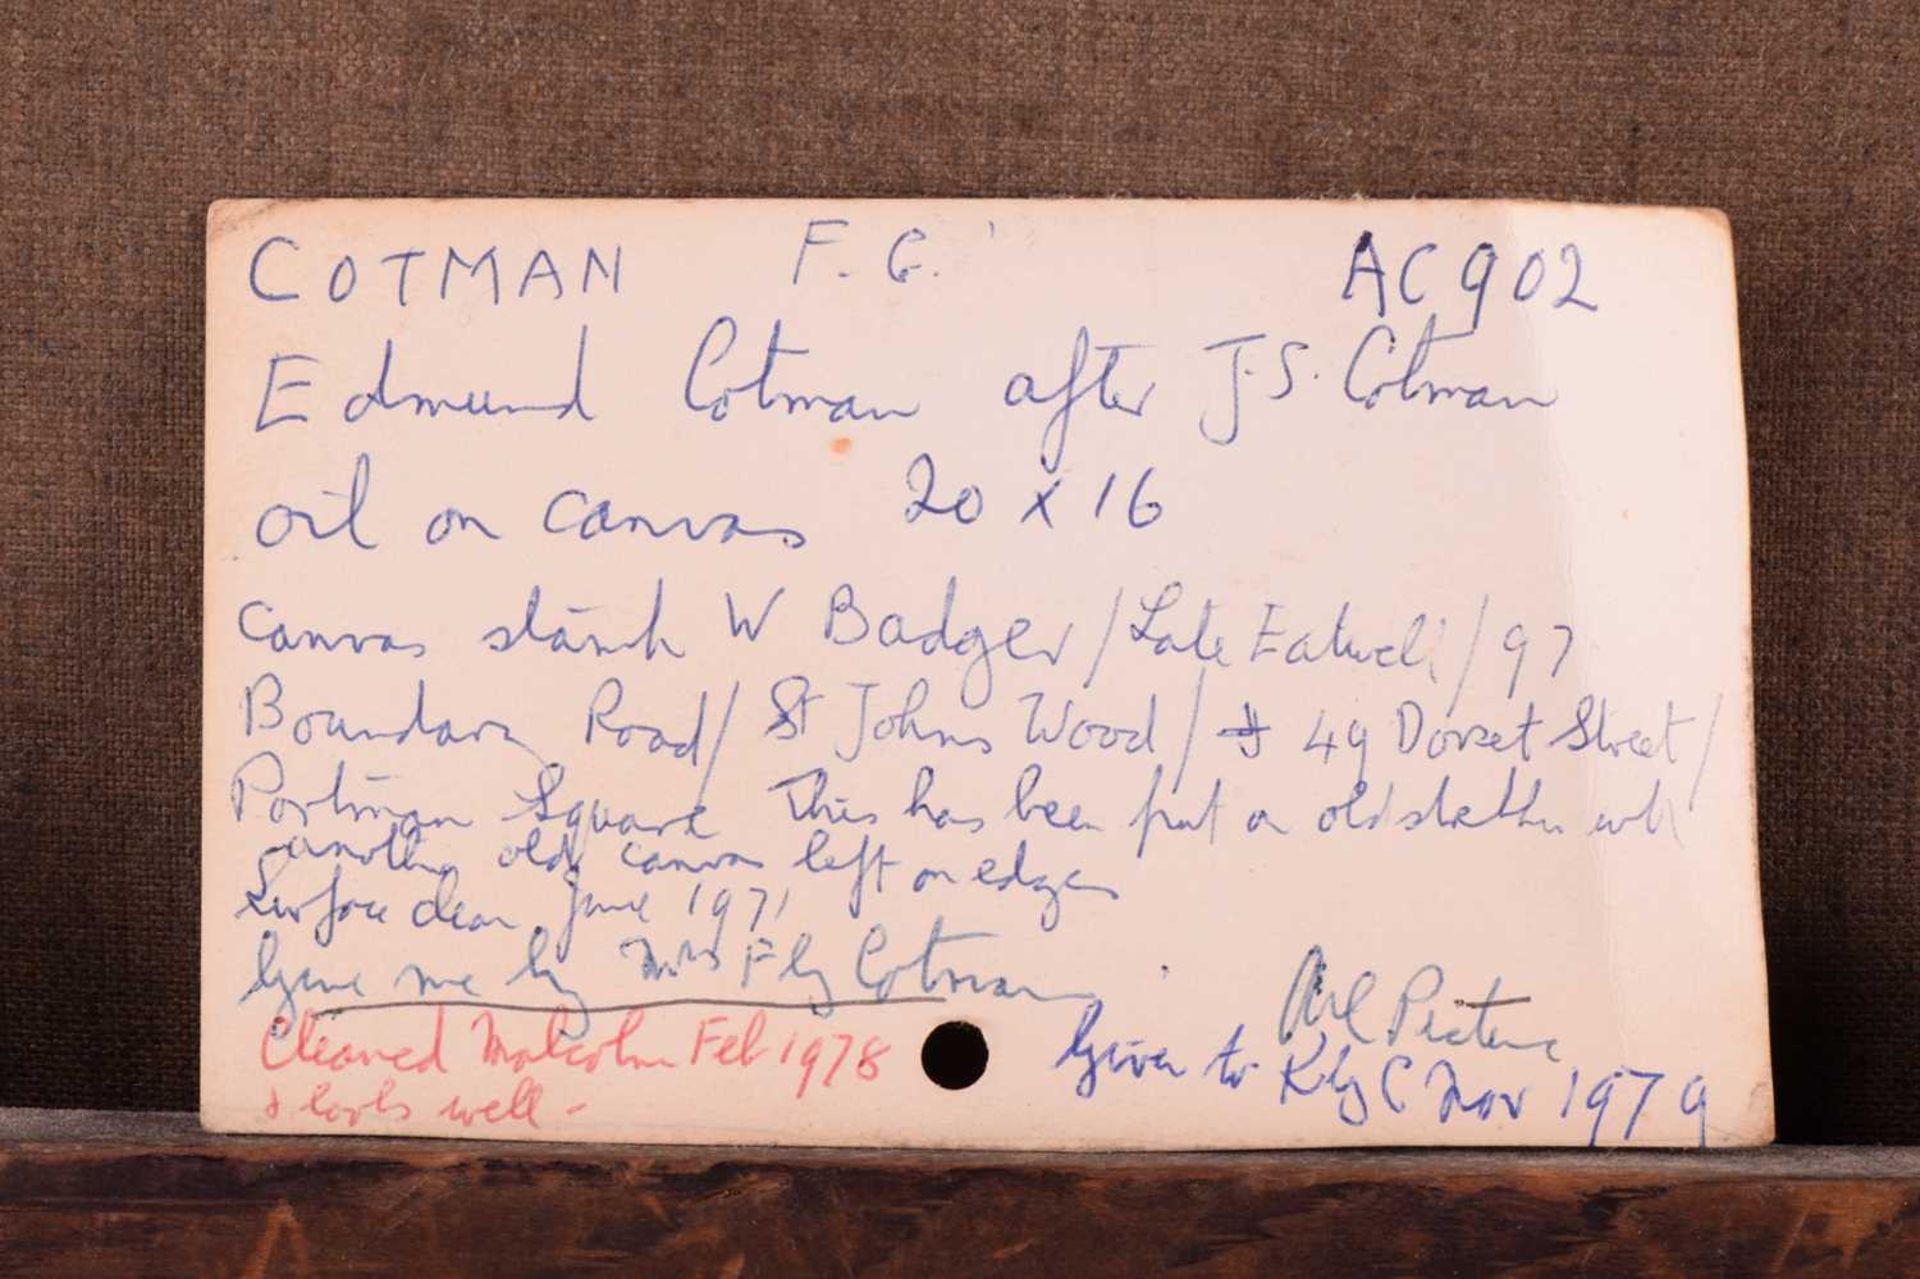 COTMAN F. G. AC902
Edmund Cotman after J.S. Cotman
oil on canvas 20 x 16
Canvas W Badger / Late Eatwell / 97
Boundary Road / St Johns Wood / 49 Dorset Street /
Portman Square This has been put on old stretcher with
another old canvas left on edges
Surface clean June 1971
Given me by Mrs Cotman
Cleaned Malcolm Feb 1978
& looks well -
Given to C Nov 1979